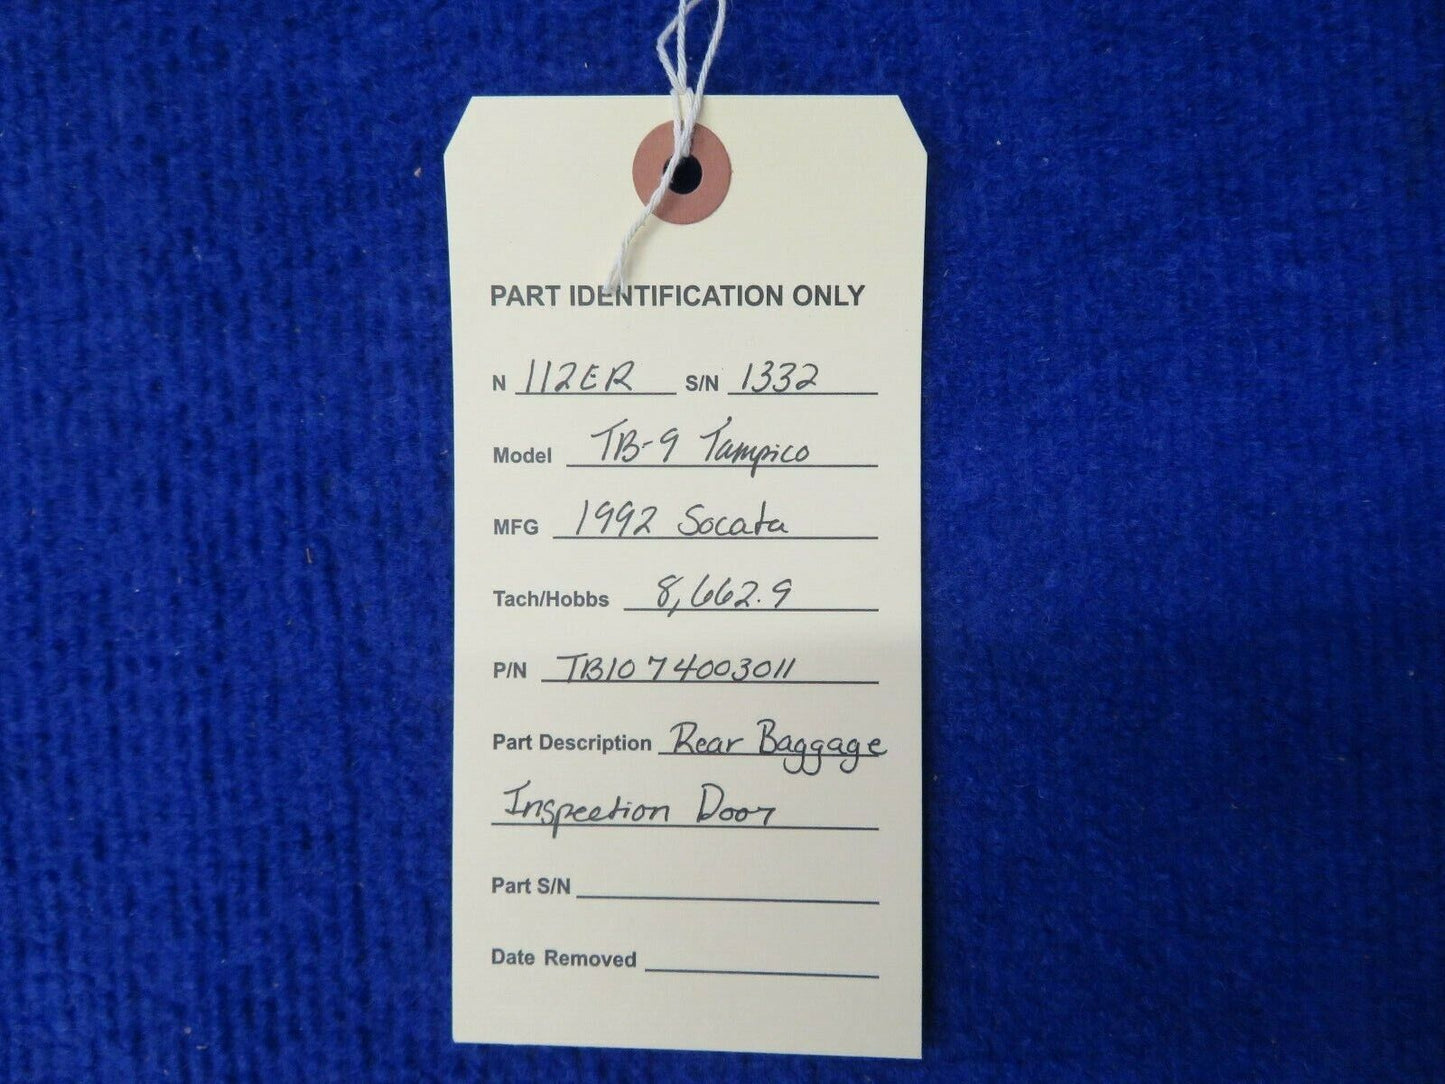 PART IDENTIFICATION ONLY
N 112ER S/N 1332
Model TB-9 Tampico
MFG 1992 Socata
Tach/Hobbs 8,662.9
P/N TB10 74003011
Part Description Rear Baggage
Inspection Door
Part S/N
Date Removed